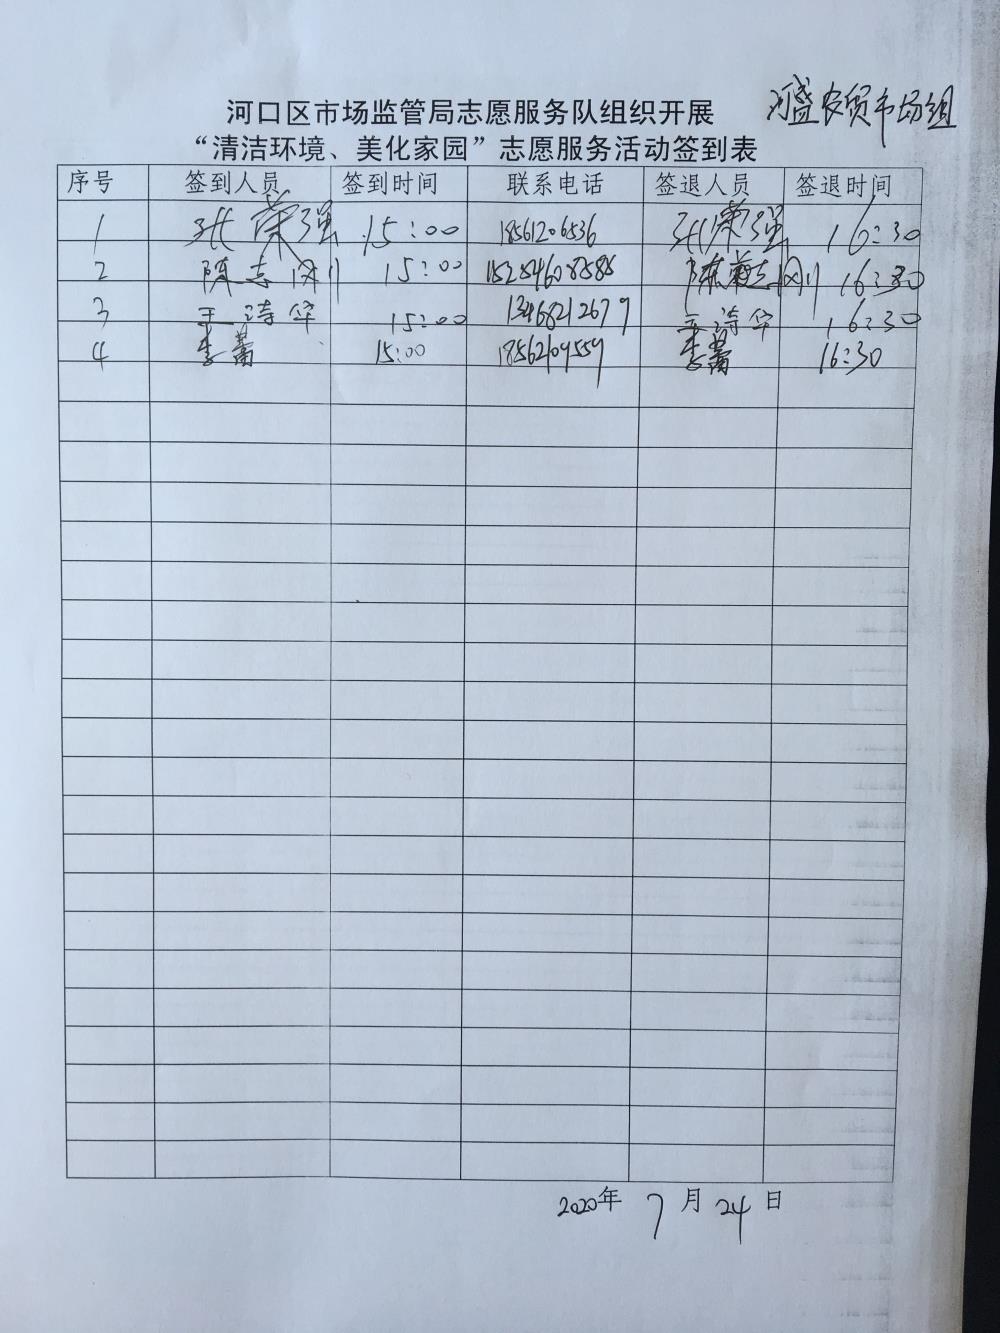 河盛农贸市场组
河口区市场监管局志愿服务队组织开展
“清洁环境、美化家园”志愿服务活动签到表
序号 签到人员 签到时间 联系电话 签退人员 签退时间
1 张荣强 15:00 18561206536 张荣强 16:30
2 陈志刚 15:00 15254608585 陈志刚 16:30
3 王诗华 15:00 13468212679 王诗华 16:30
4 李蕾 15:00 18562109559 李蕾 16:30
2020年 7月24日